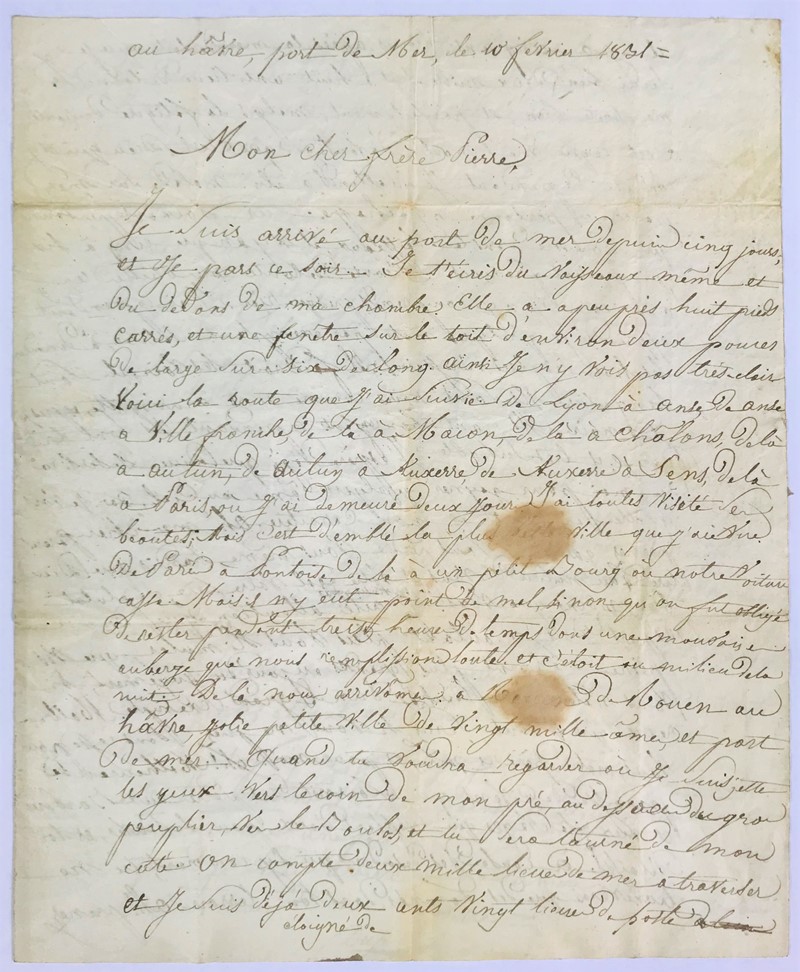 au hâvre, port de Mer, le 10 février 1831=
Mon cher frère Pierre,
Je suis arrivé au port de mer depuis cinq jours,
et Je pars ce soir. Je t'écris du Vaisseaux même et
du dedans de ma chambre. Elle a apeuprès huit pieds
carrés, et une fenêtre sur le toit d'environ deux pouces
de large sur six de long. ainsi Je n'y Vois pas très-clair
Voici la route que J'ai Suivie. De Lyon à anse, de anse
a Ville franche, de là à Macon, de là a châlons, de là
a autun, de autun a Auxerre, de Auxerre à Sens, de là
a Paris, ou J'ai demeuré deux jour. J'ai toutes Visité Ses
beautés. Mais c'est d'emblé la plus Ville que j'aie Vue.
De Pari à Pontoise de là à un petit Bourg ou notre Voiture
cassa. Mais il n'y eut point de mal, Si non qu'on fut obligé
De rester pendant treize heure De temps dans une mauvaise
auberge que nous remplission toute. et c'étoit au milieu de la
nuit. De la nou arrivâme à de Rouen au
hâvre jolie petite Ville de Vingt mille âme, et port
De mer. Quand tu Voudra regarder où Je Suis, jette
les yeux Vers le coin de mon pré, au dessus du gro
peuplier, Ver le Boulot, et tu Sera tourné de mon
coté. On compte deux mille lieue de mer a traverser
et Je Suis déjà deux cents Vingt lieue de poste
éloigné de